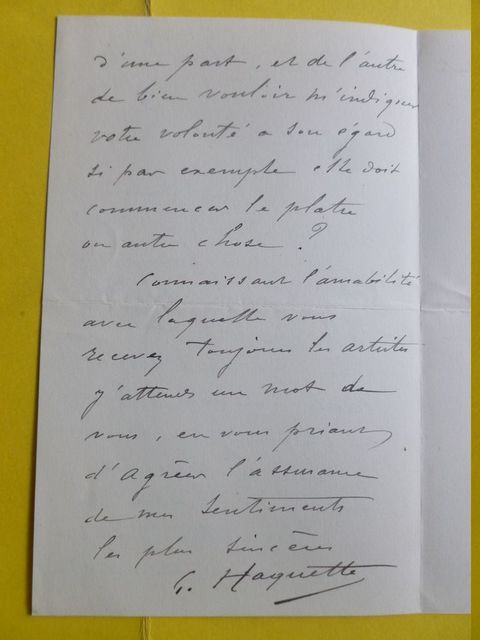 d'une part, et de l'autre
de bien vouloir m'indiquer
votre volonté a son égard
si par exemple elle doit
commencer le platre
ou autre chose ?
Connaissant l'amabilité
avec laquelle vous
recevez toujours les artistes
j'attends un mot de
vous, en vous priant
d'agréer l'assurance
de mes sentiments
les plus sincères
G. Haquette